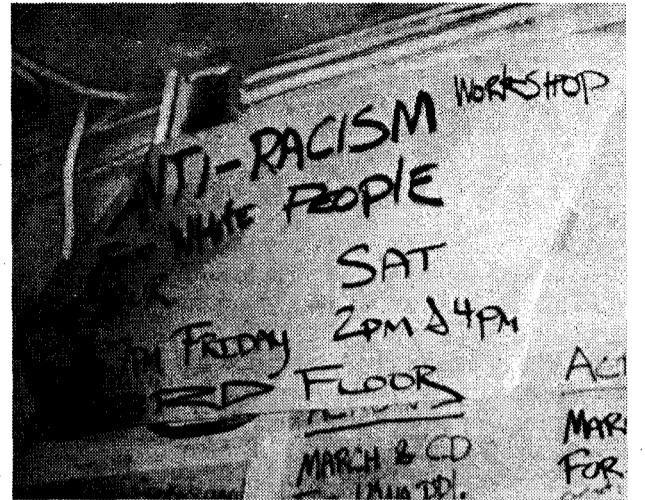 ANTI-RACISM WORKSHOP
FOR WHITE PEOPLE
SAT
PM FRIDAY 2PM & 4PM
RD FLOOR
MARCH & CD
MAR
FOR